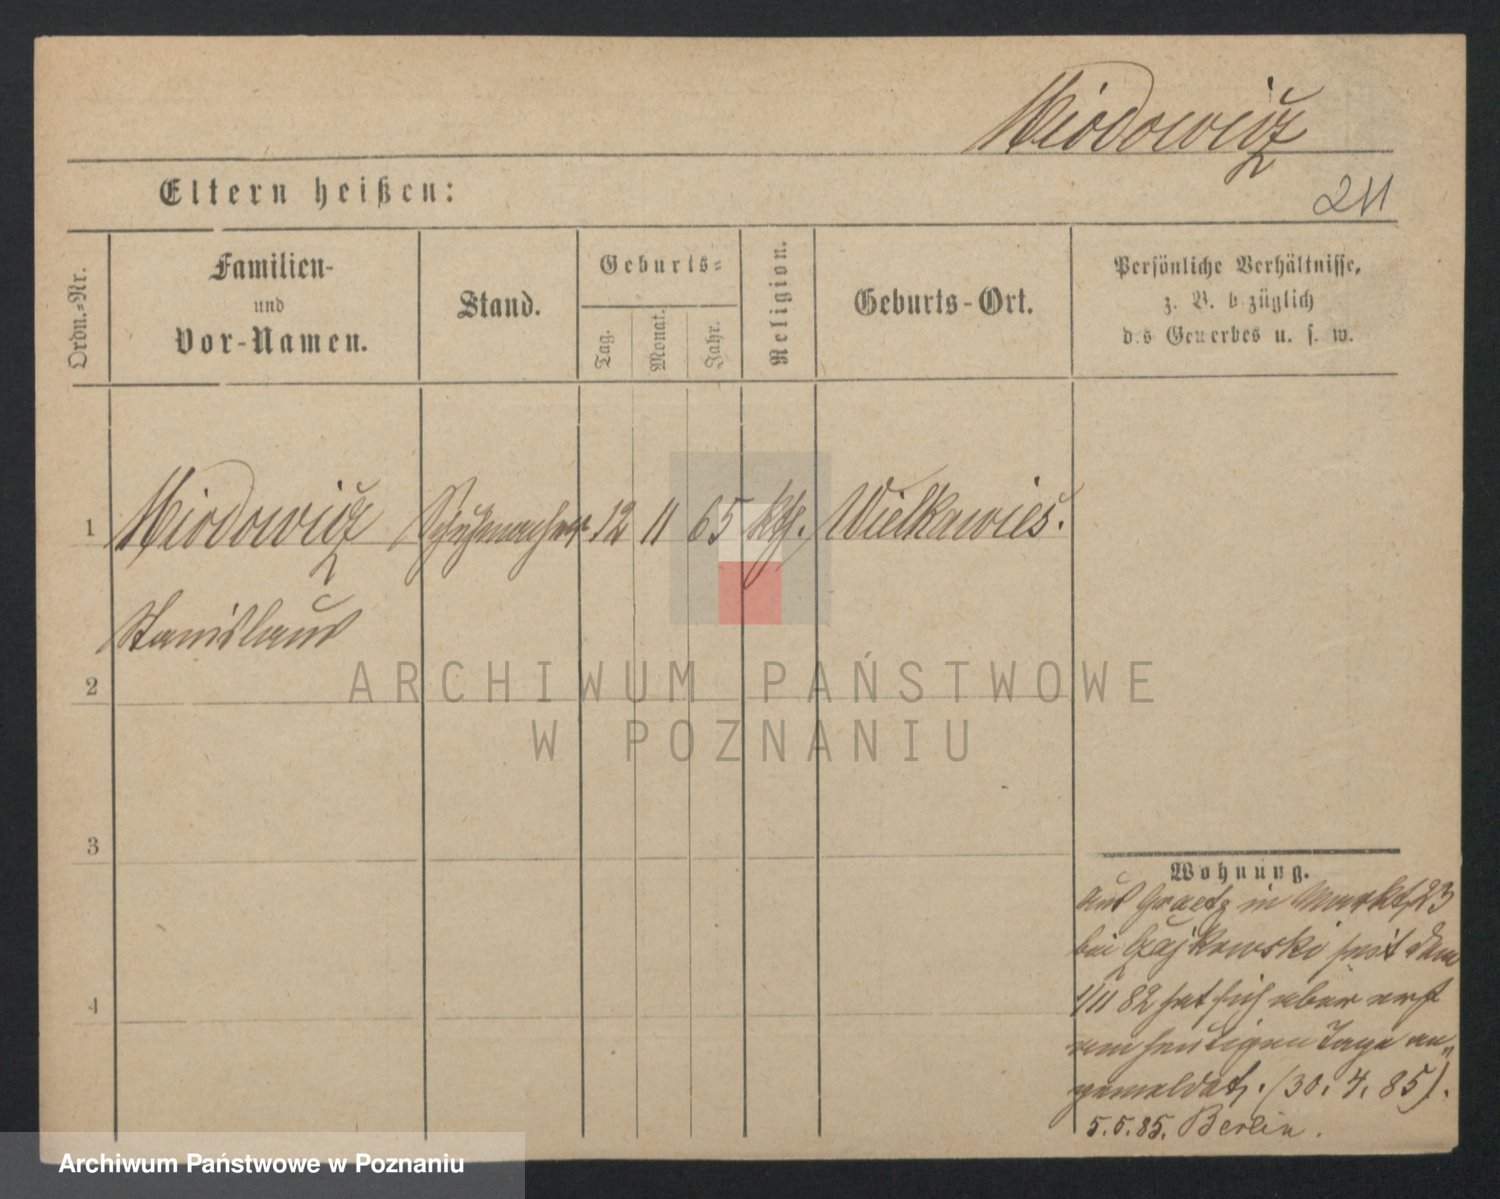 Miodowicz
Eltern heißen:
211
Ordn.=Nr.
Familien-
und
Vor-Namen.
Stand.
Geburts=
Tag.
Monat.
Jahr.
Religion.
Geburts-Ort.
Persönliche Verhältnisse,
z. B. bezüglich
des Gewerbes u. s. w.
1 Miodowicz Schuhmacher 12 11 65 kth. Wielkawies.
Stanislaus
2
3
4
Wohnung.
aus Graetz in Markt 23
bei Czajkowski seit dem
1/11 82 hat sich aber erst
am heutigen Tage an=
gemeldet. (30. 4. 85).
5.5.85. Berlin.
ARCHIWUM PAŃSTWOWE
W POZNANIU
Archiwum Państwowe w Poznaniu